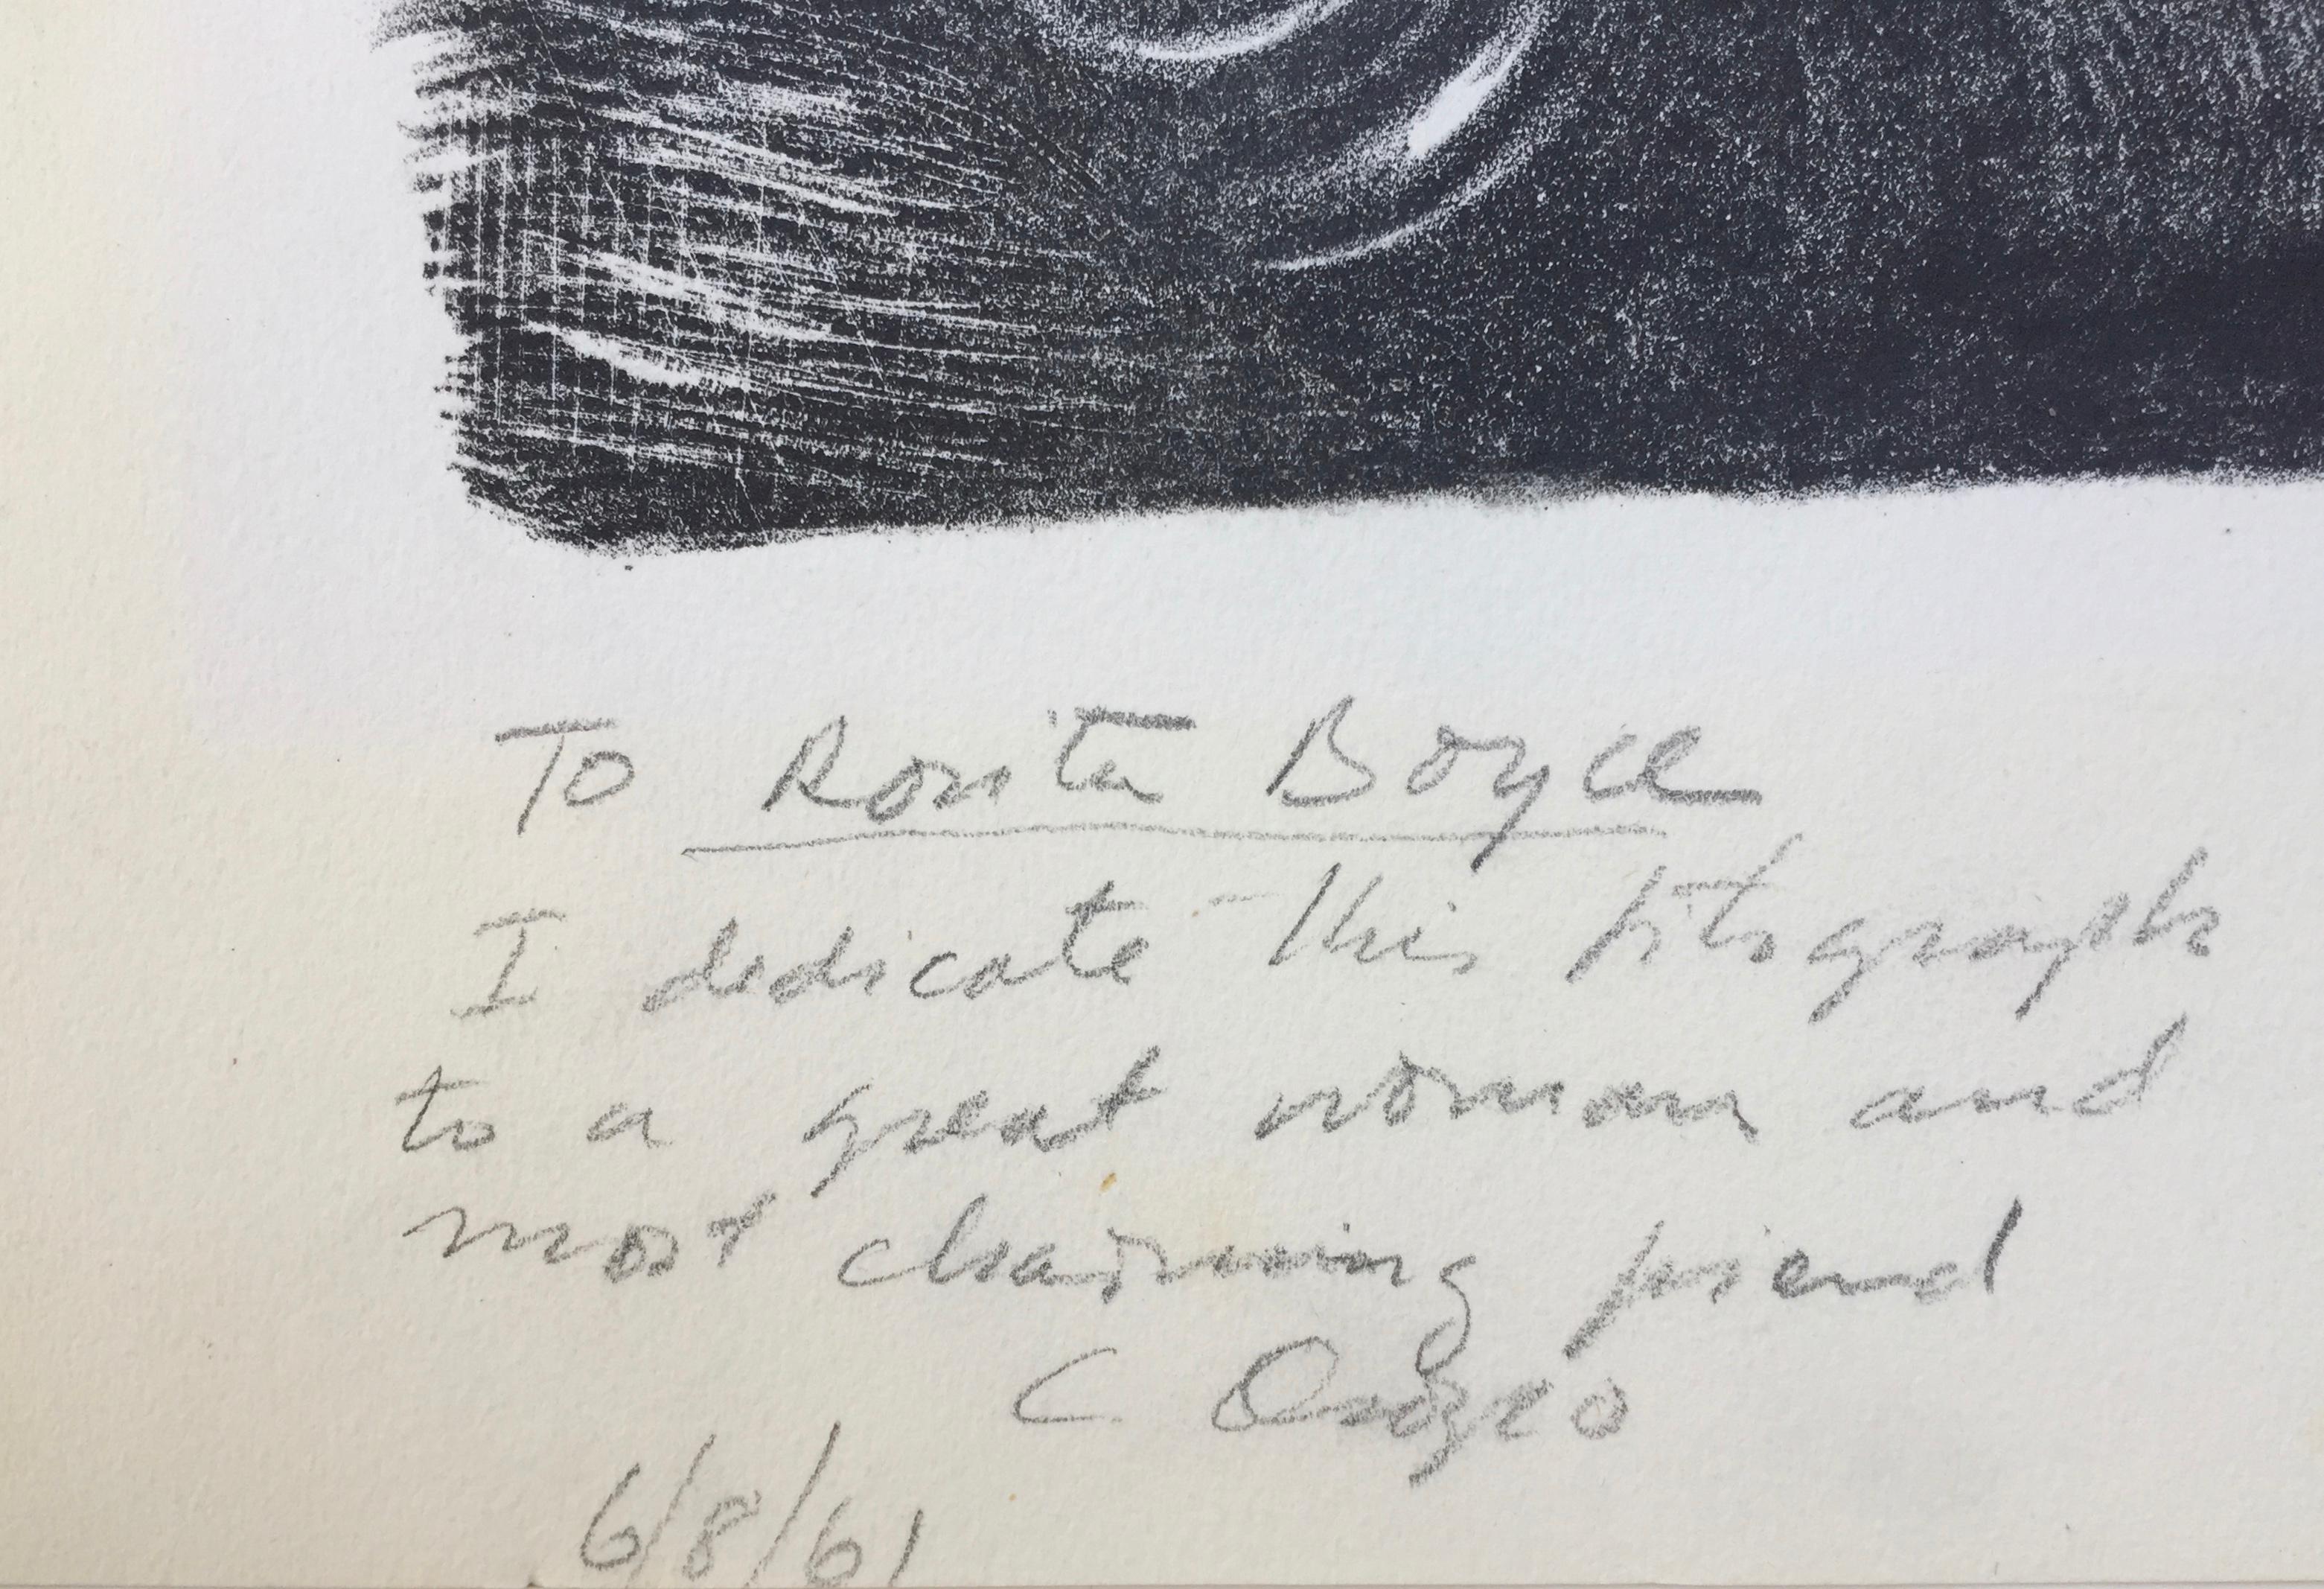 To Rosita Boyce
I dedicate this litograph
to a great woman and
most charming friend
C Orozco
6/8/61